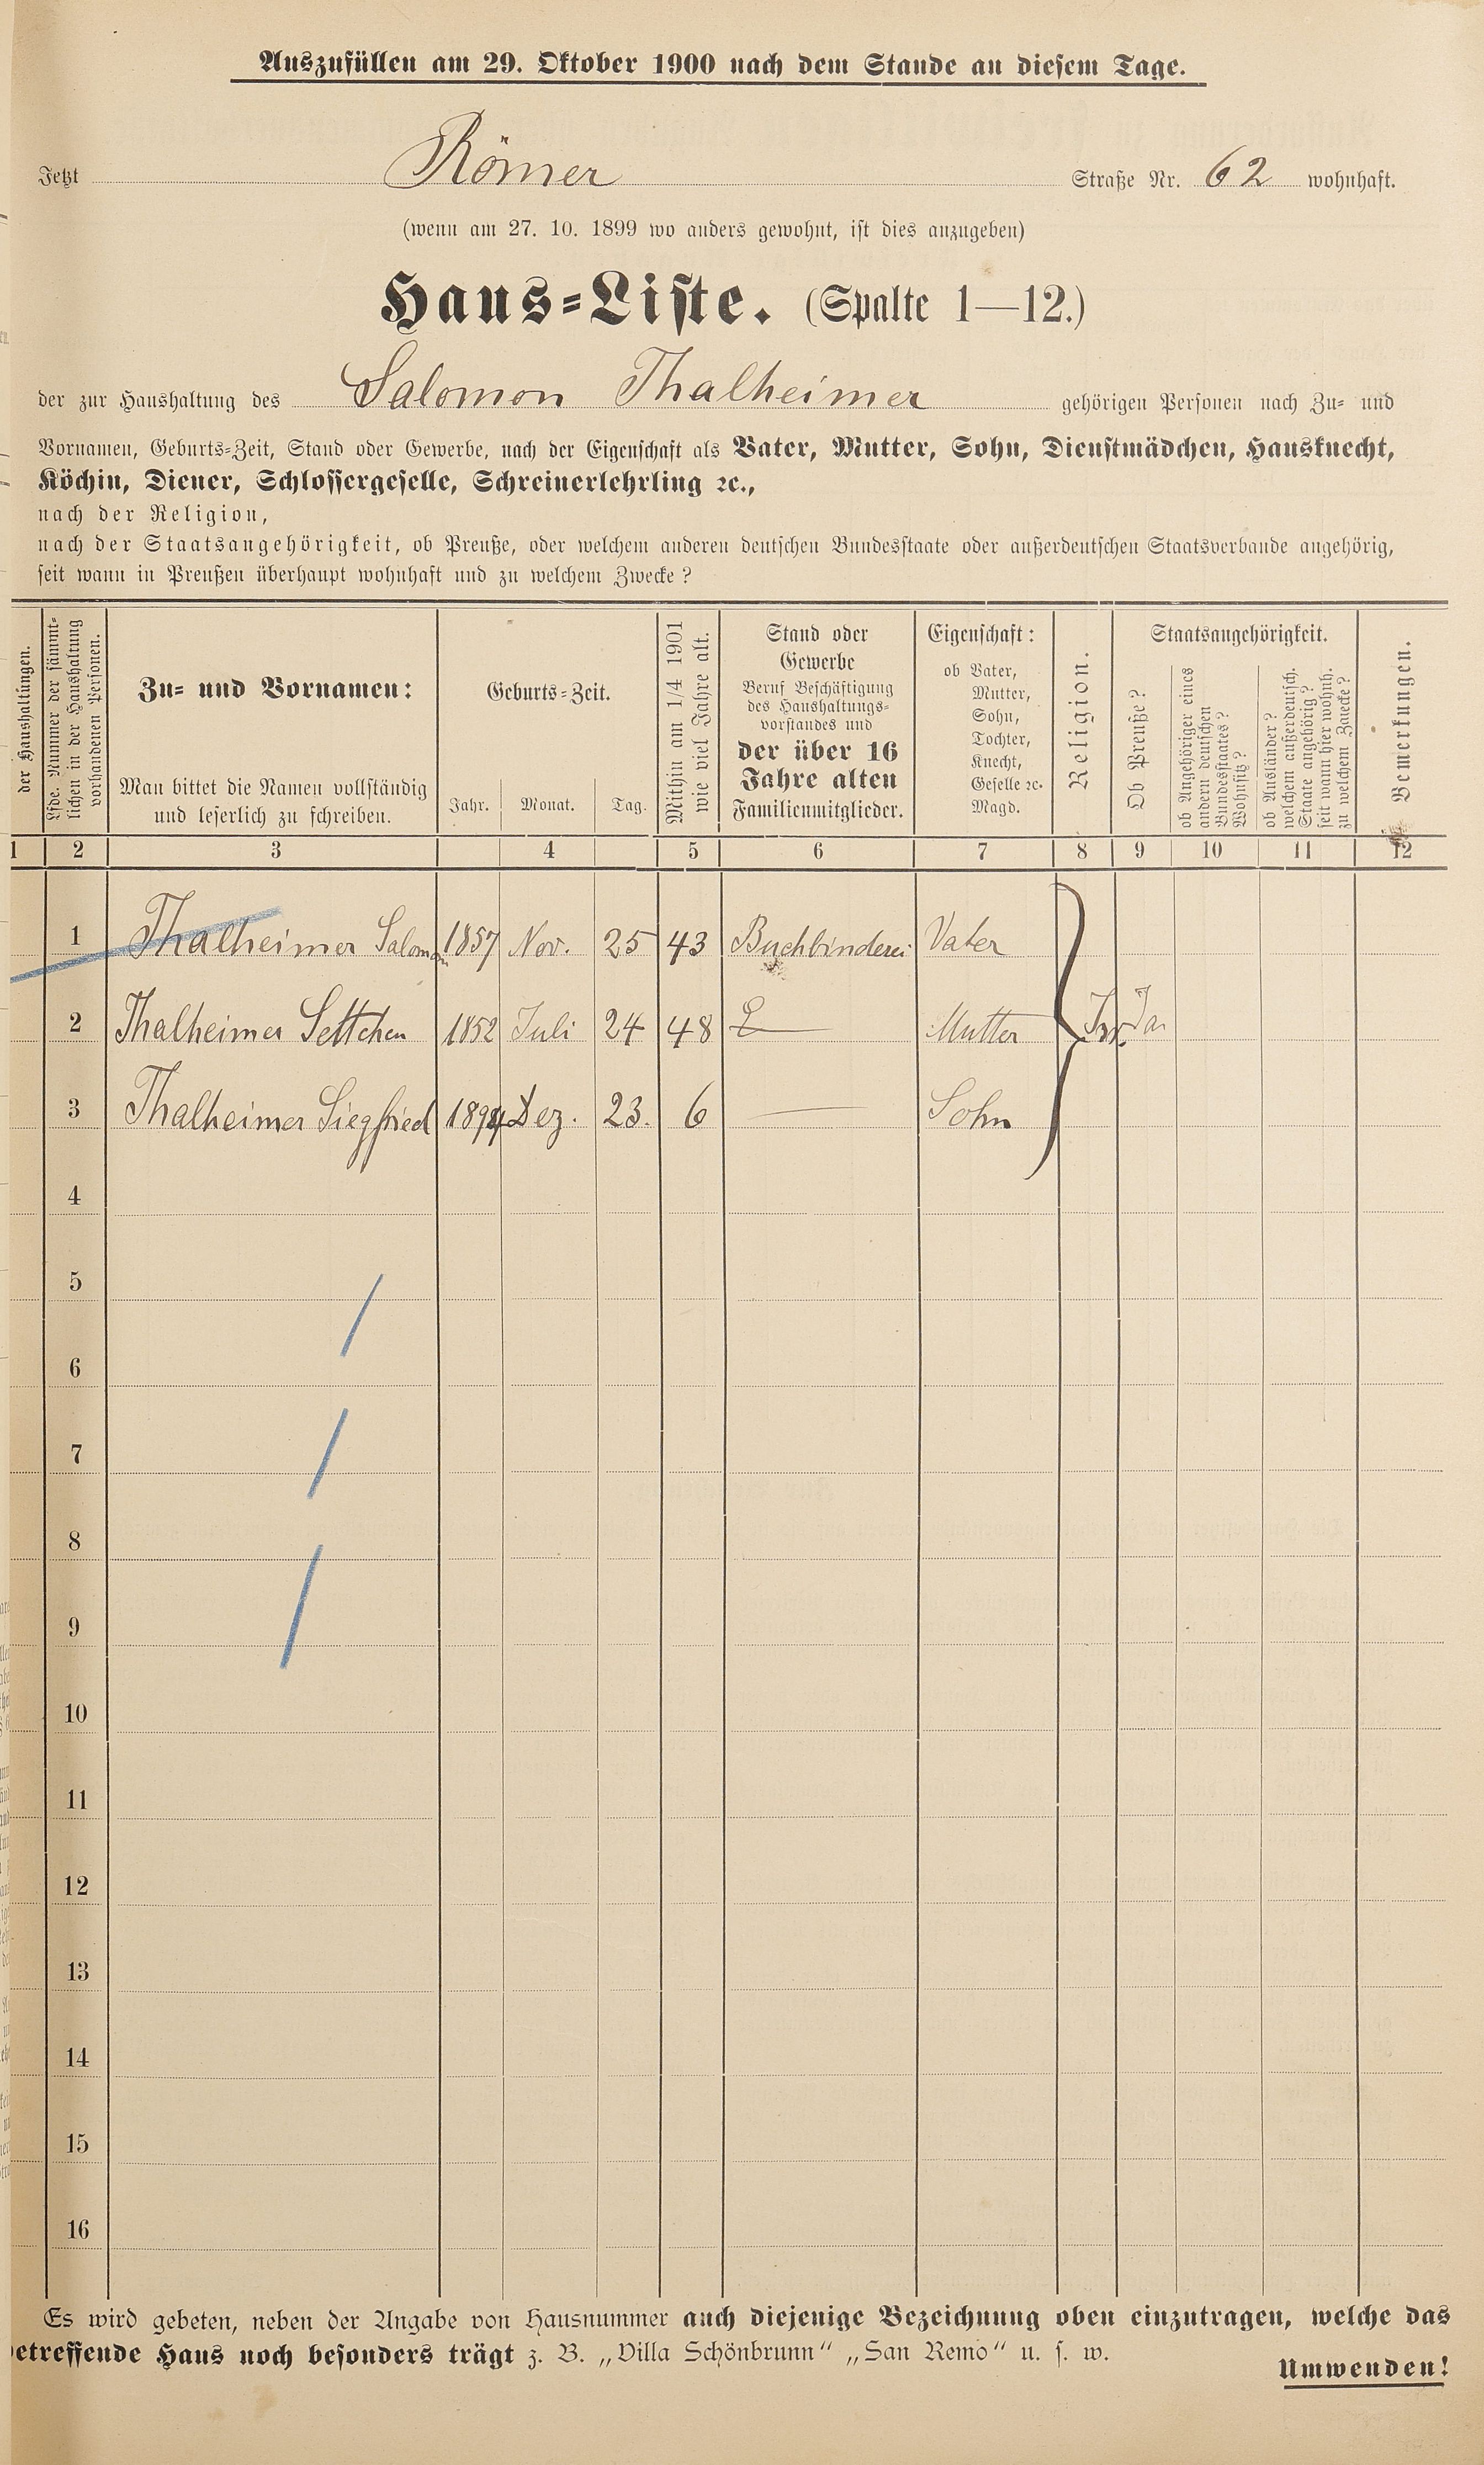 Auszufüllen am 29. Oktober 1900 nach dem Stande an diesem Tage.
Jetzt Römer Straße Nr. 62 wohnhaft.
(wenn am 27. 10. 1899 wo anders gewohnt, ist dies anzugeben)
Haus-Liste. (Spalte 1—12.)
der zur Haushaltung des Salomon Thalheimer gehörigen Personen nach Zu- und
Vornamen, Geburts-Zeit, Stand oder Gewerbe, nach der Eigenschaft als Vater, Mutter, Sohn, Dienstmädchen, Hausknecht,
Köchin, Diener, Schlossergeselle, Schreinerlehrling ꝛc.,
nach der Religion,
nach der Staatsangehörigkeit, ob Preuße, oder welchem anderen deutschen Bundesstaate oder außerdeutschen Staatsverbande angehörig,
seit wann in Preußen überhaupt wohnhaft und zu welchem Zwecke?
der Haushaltungen.
Lfde. Nummer der sämmt-
lichen in der Haushaltung
vorhandenen Personen.
Zu- und Vornamen:
Man bittet die Namen vollständig
und leserlich zu schreiben.
Geburts-Zeit.
Jahr. Monat. Tag.
Mithin am 1/4 1901
wie viel Jahre alt.
Stand oder
Gewerbe
Beruf Beschäftigung
des Haushaltungs-
vorstandes und
der über 16
Jahre alten
Familienmitglieder.
Eigenschaft:
ob Vater,
Mutter,
Sohn,
Tochter,
Knecht,
Geselle ꝛc.
Magd.
Religion.
Staatsangehörigkeit.
Ob Preuße?
ob Angehöriger eines
andern deutschen
Bundesstaates?
Wohnsitz?
ob Ausländer?
welchem außerdeutsch.
Staate angehörig?
seit wann hier wohnh.
zu welchem Zwecke?
Bemerkungen.
1 2 3 4 5 6 7 8 9 10 11 12
1 Thalheimer Salomon 1857 Nov. 25 43 Buchbinderei Vater
2 Thalheimer Settchen 1852 Juli 24 48 Mutter Isr. Ja
3 Thalheimer Siegfried 1894 Dez. 23. 6 Sohn
4
5
6
7
8
9
10
11
12
13
14
15
16
Es wird gebeten, neben der Angabe von Hausnummer auch diejenige Bezeichnung oben einzutragen, welche das
etreffende Haus noch besonders trägt z. B. „Villa Schönbrunn“ „San Remo“ u. s. w.
Umwenden!